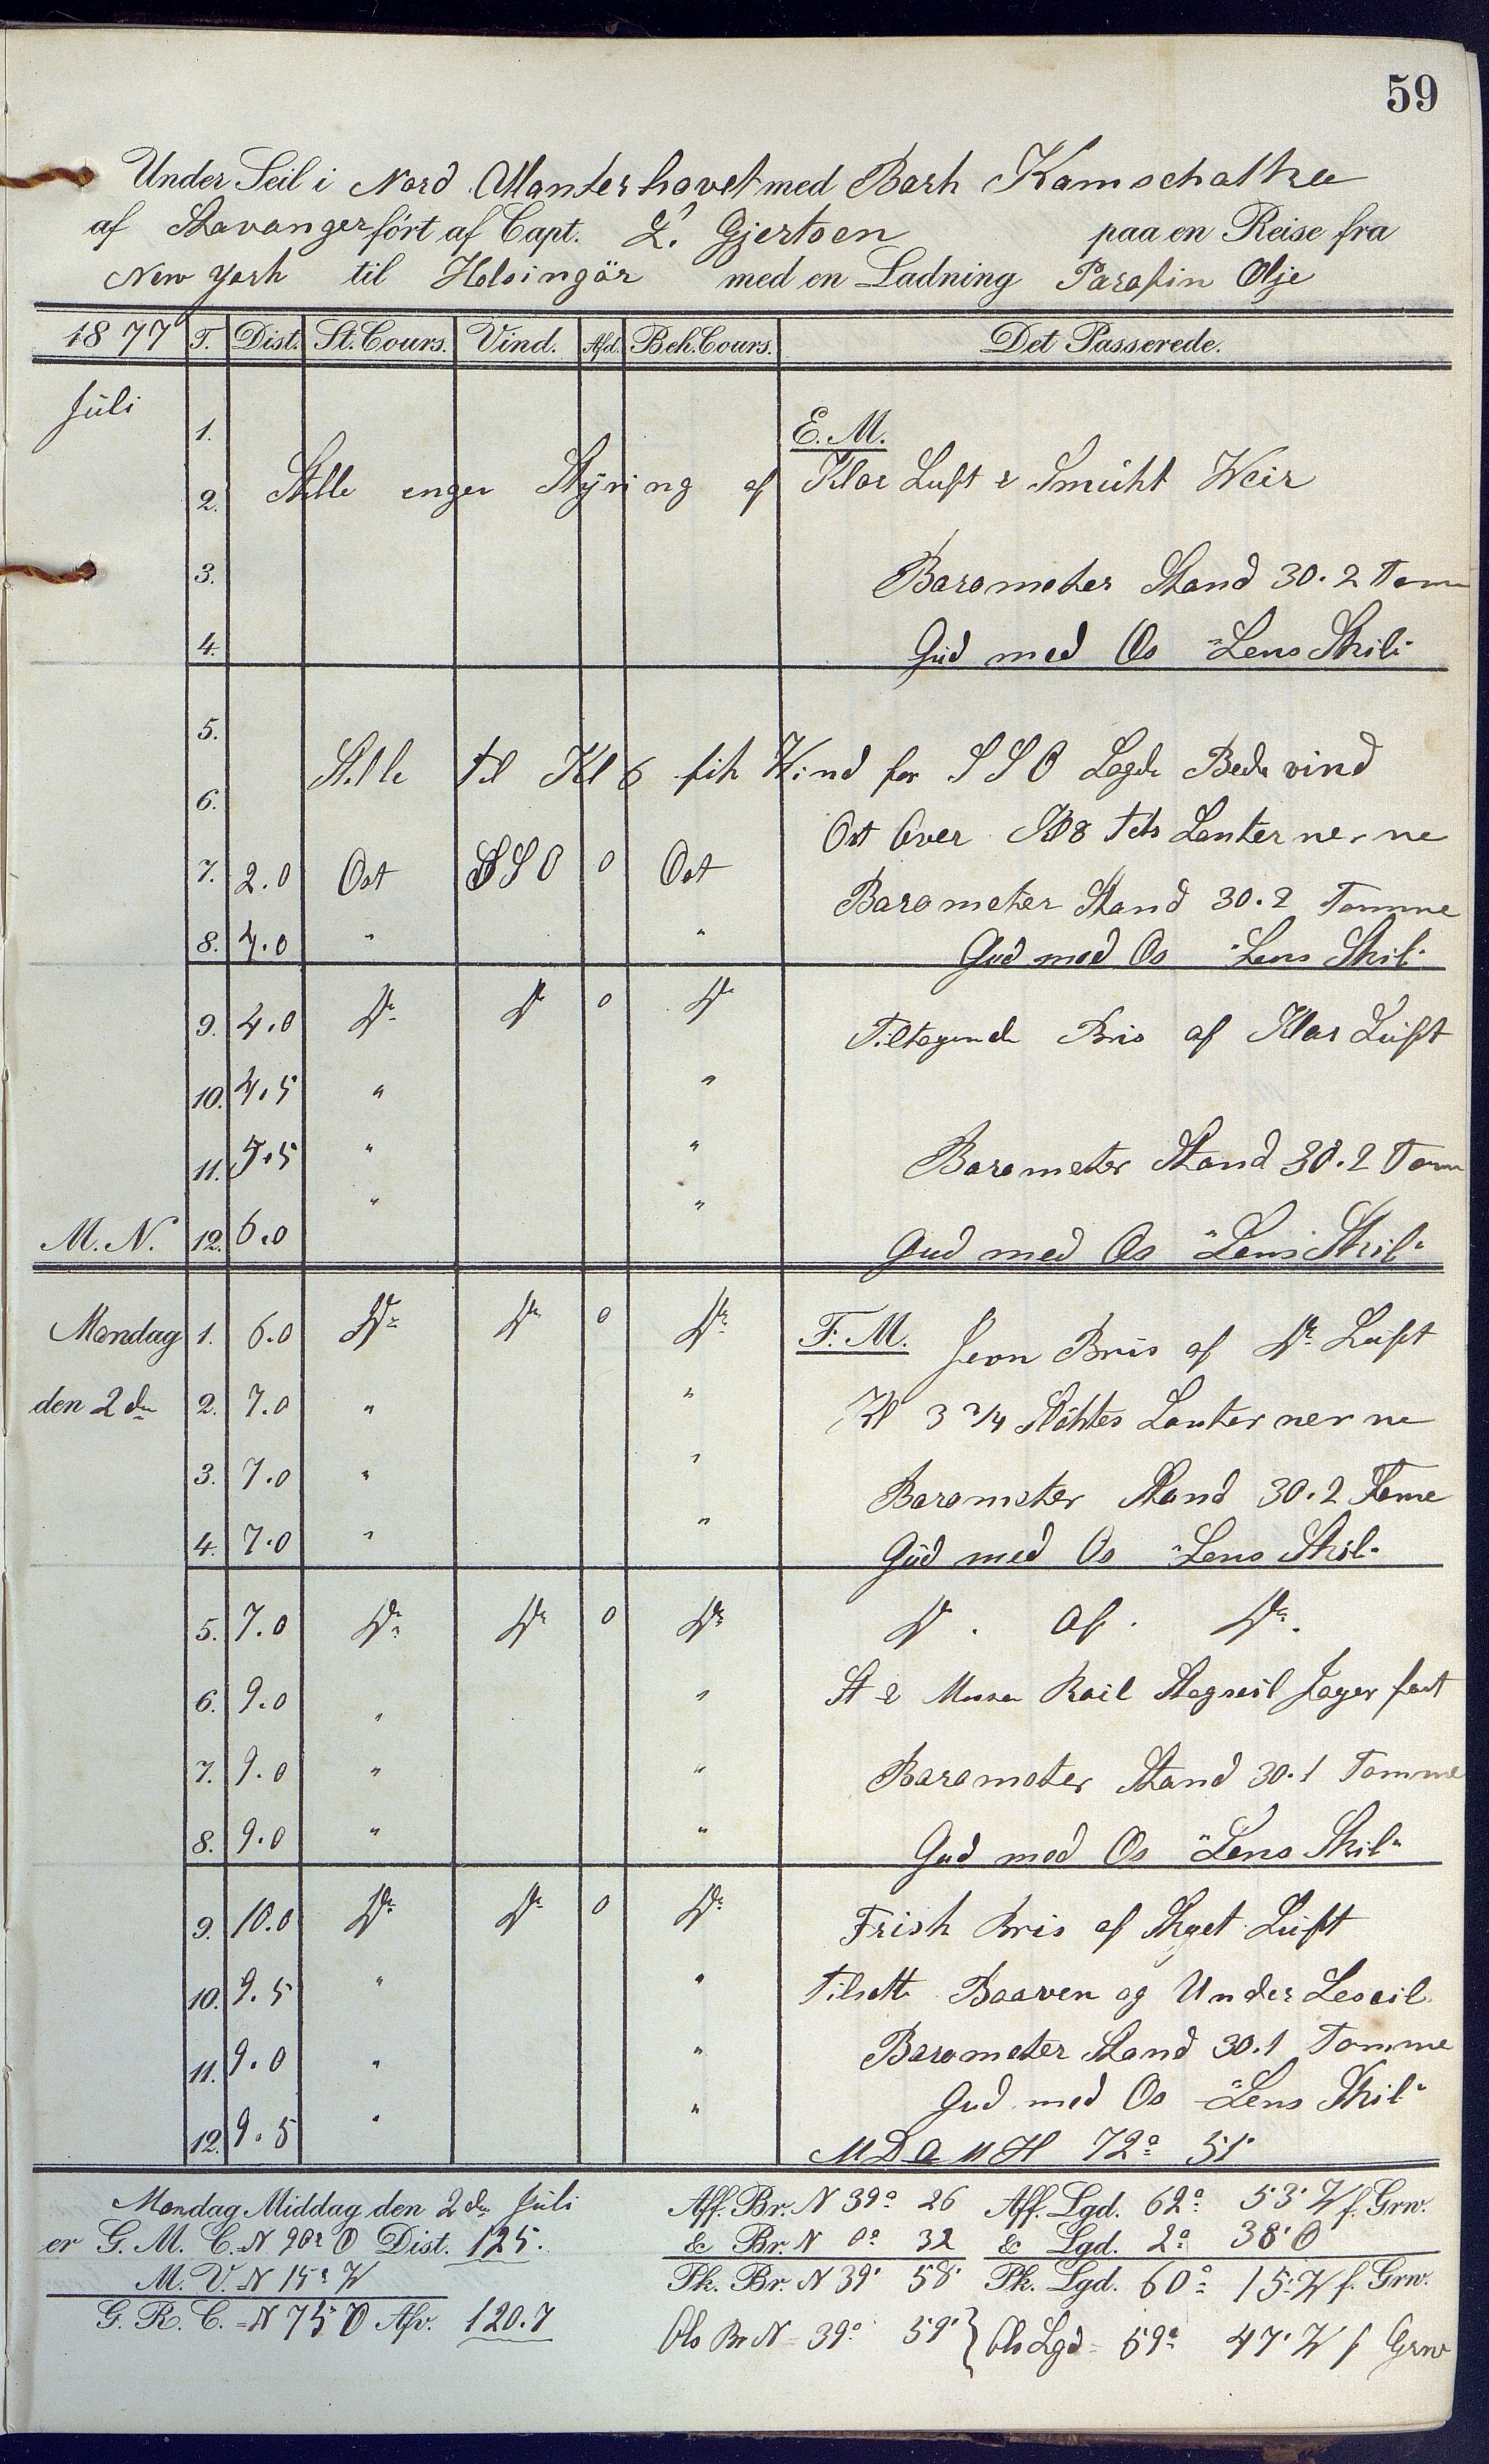 59
Under Seil i Nord Atlanterhavet med Bark Kamschatka
af Stavanger fört af Capt. L. Gjertsen paa en Reise fra
New York til Helsingör med en Ladning Parafin Olje
1877 T. Dist. St. Cours. Vind. Afd. Beh. Cours. Det Passerede.
Juli
1. E. M.
2. Stille ingen Styring af Klar Luft & Smuht Veir
3. Barometer Stand 30.2 Tom
4. Gud med Os "Lens Skib"
5.
6. Stille til Kl 6 fik Vind fra S S O Lagde Bede vind
Ost Over Kl 8 Lanternerne
7. 2.0 Ost S S O 0 Ost
Barometer Stand 30.2 Tomme
8. 4.0 " "
Gud med Os "Lens Skib"
9. 4.0 Do Do 0 Do Tiltagende Bris af Klar Luft
10. 4.5 " "
11. 5.5 " " Barometer Stand 30.2 Tom
M. N. 12. 6.0 " " Gud med Os "Lens Skib"
Mandag 1. 6.0 Do Do 0 Do F. M. Jevn Bris af Do Luft
den 2 den 2. 7.0 " " Kl 3 3/4 Slöktes Lanternerne
3. 7.0 " " Barometer Stand 30.2 Tome
4. 7.0 " " Gud med Os "Lens Skib"
5. 7.0 Do Do 0 Do Do. af. Do.
6. 9.0 " " St & Mesan Roil Stagseil Jager fast
7. 9.0 " " Barometer Stand 30.1 Tomme
8. 9.0 " " Gud med Os "Lens Skib"
9. 10.0 Do Do 0 Do Frish Bris af Skyet Luft
10. 9.5 " " Tilsatte Baaven og Under Leseil
11. 9.0 " " Barometer Stand 30.1 Tomme
Gud med Os "Lens Skib"
12. 9.5 " " H 72° 51'
Mandag Middag den 2 den Juli Aff. Br. N 39° 26 Aff. Lgd. 62° 53' W f. Grw.
er G. M. C. N 90° O Dist. 125. & Br. N 0° 32 & Lgd. 2° 38' O
M. V. N 15° W Pk. Br. N 39° 58' Pk. Lgd. 60° 15' W f. Grw.
G. R. C. = N 75 O Afv. 120.7
Obs Br N = 39° 59' } Obs Lgd = 59° 47' W f Grw